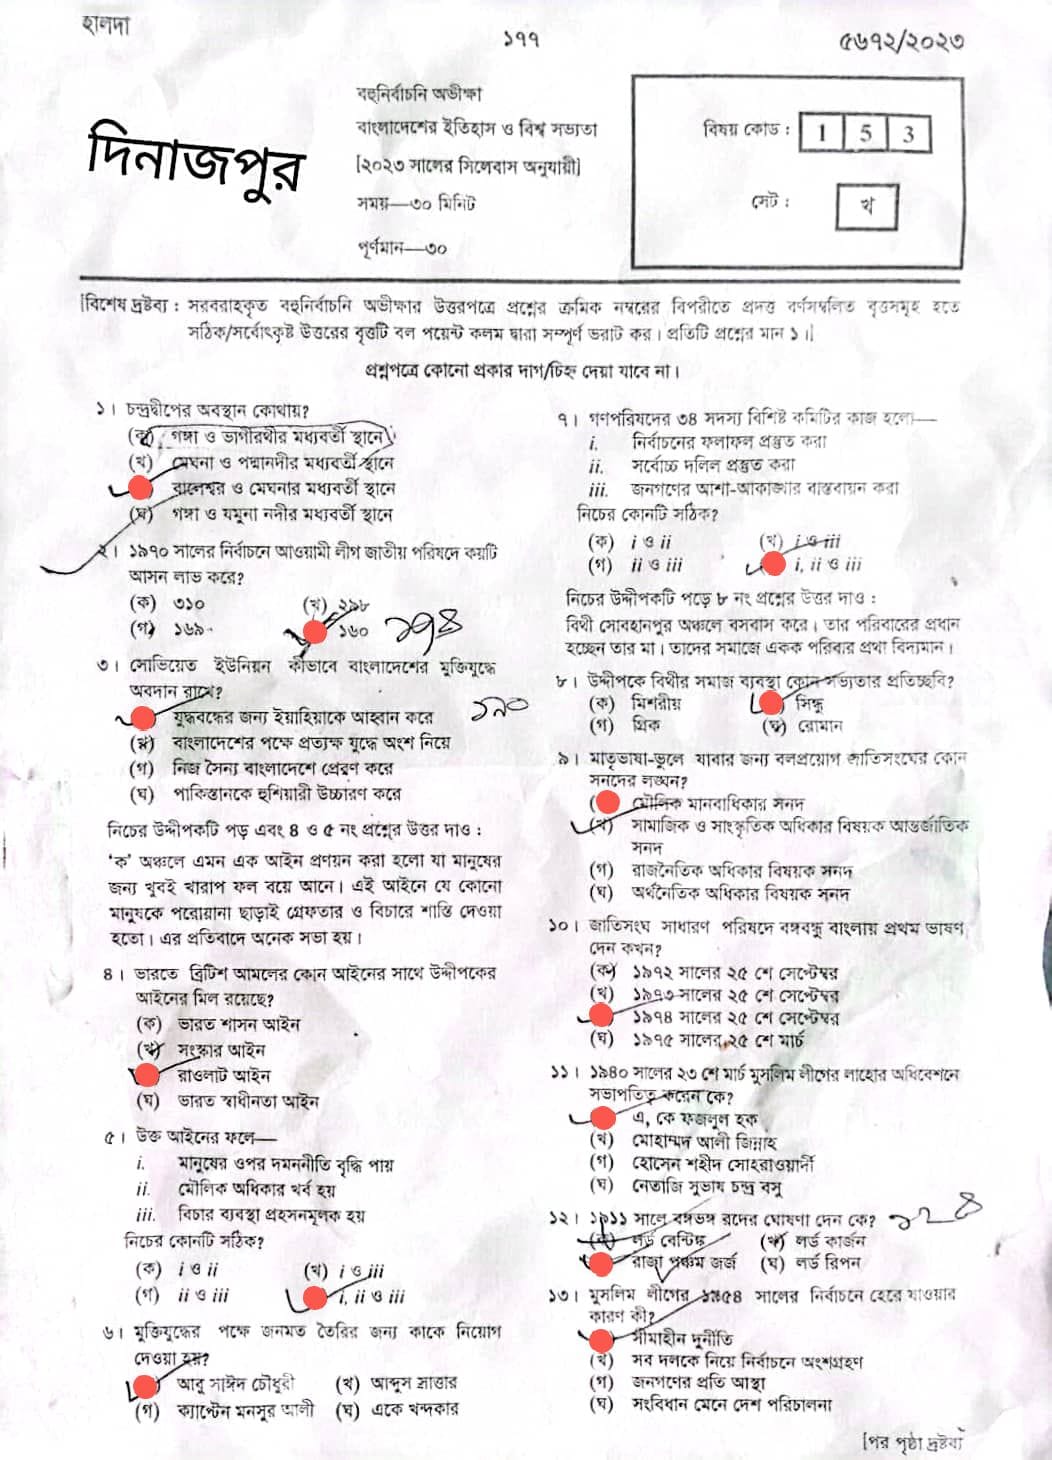 হালদা
১৭৭
৫৬৭২/২০২৩
দিনাজপুর
বহুনির্বাচনি অভীক্ষা
বাংলাদেশের ইতিহাস ও বিশ্ব সভ্যতা
[২০২৩ সালের সিলেবাস অনুযায়ী]
সময়—৩০ মিনিট
পূর্ণমান—৩০
বিষয় কোড : 1 5 3
সেট : খ
[বিশেষ দ্রষ্টব্য : সরবরাহকৃত বহুনির্বাচনি অভীক্ষার উত্তরপত্রে প্রশ্নের ক্রমিক নম্বরের বিপরীতে প্রদত্ত বর্ণসম্বলিত বৃত্তসমূহ হতে
সঠিক/সর্বোৎকৃষ্ট উত্তরের বৃত্তটি বল পয়েন্ট কলম দ্বারা সম্পূর্ণ ভরাট কর। প্রতিটি প্রশ্নের মান ১।]
প্রশ্নপত্রে কোনো প্রকার দাগ/চিহ্ন দেয়া যাবে না।
১। চন্দ্রদ্বীপের অবস্থান কোথায়?
(ক) গঙ্গা ও ভাগীরথীর মধ্যবর্তী স্থানে
(খ) মেঘনা ও পদ্মানদীর মধ্যবর্তী স্থানে
বালেশ্বর ও মেঘনার মধ্যবর্তী স্থানে
(ঘ) গঙ্গা ও যমুনা নদীর মধ্যবর্তী স্থানে
২। ১৯৭০ সালের নির্বাচনে আওয়ামী লীগ জাতীয় পরিষদে কয়টি
আসন লাভ করে?
(ক) ৩১০ (খ) ২৯৮
(গ) ১৬৯ ১৬০
৩। সোভিয়েত ইউনিয়ন কীভাবে বাংলাদেশের মুক্তিযুদ্ধে
অবদান রাখে?
যুদ্ধবন্ধের জন্য ইয়াহিয়াকে আহ্বান করে
(খ) বাংলাদেশের পক্ষে প্রত্যক্ষ যুদ্ধে অংশ নিয়ে
(গ) নিজ সৈন্য বাংলাদেশে প্রেরণ করে
(ঘ) পাকিস্তানকে হুশিয়ারী উচ্চারণ করে
নিচের উদ্দীপকটি পড় এবং ৪ ও ৫ নং প্রশ্নের উত্তর দাও :
‘ক’ অঞ্চলে এমন এক আইন প্রণয়ন করা হলো যা মানুষের
জন্য খুবই খারাপ ফল বয়ে আনে। এই আইনে যে কোনো
মানুষকে পরোয়ানা ছাড়াই গ্রেফতার ও বিচারে শাস্তি দেওয়া
হতো। এর প্রতিবাদে অনেক সভা হয়।
৪। ভারতে ব্রিটিশ আমলের কোন আইনের সাথে উদ্দীপকের
আইনের মিল রয়েছে?
(ক) ভারত শাসন আইন
(খ) সংস্কার আইন
রাওলাট আইন
(ঘ) ভারত স্বাধীনতা আইন
৫। উক্ত আইনের ফলে—
i. মানুষের ওপর দমননীতি বৃদ্ধি পায়
ii. মৌলিক অধিকার খর্ব হয়
iii. বিচার ব্যবস্থা প্রহসনমূলক হয়
নিচের কোনটি সঠিক?
(ক) i ও ii (খ) i ও iii
(গ) ii ও iii i, ii ও iii
৬। মুক্তিযুদ্ধের পক্ষে জনমত তৈরির জন্য কাকে নিয়োগ
দেওয়া হয়?
আবু সাঈদ চৌধুরী (খ) আব্দুস সাত্তার
(গ) ক্যাপ্টেন মনসুর আলী (ঘ) একে খন্দকার
৭। গণপরিষদের ৩৪ সদস্য বিশিষ্ট কমিটির কাজ হলো—
i. নির্বাচনের ফলাফল প্রস্তুত করা
ii. সর্বোচ্চ দলিল প্রস্তুত করা
iii. জনগণের আশা-আকাঙ্খার বাস্তবায়ন করা
নিচের কোনটি সঠিক?
(ক) i ও ii (খ) i ও iii
(গ) ii ও iii i, ii ও iii
নিচের উদ্দীপকটি পড়ে ৮ নং প্রশ্নের উত্তর দাও :
বিথী সোবহানপুর অঞ্চলে বসবাস করে। তার পরিবারের প্রধান
হচ্ছেন তার মা। তাদের সমাজে একক পরিবার প্রথা বিদ্যমান।
৮। উদ্দীপকে বিথীর সমাজ ব্যবস্থা কোন সভ্যতার প্রতিচ্ছবি?
(ক) মিশরীয় সিন্ধু
(গ) গ্রিক (ঘ) রোমান
৯। মাতৃভাষা-ভুলে যাবার জন্য বলপ্রয়োগ জাতিসংঘের কোন
সনদের লঙ্ঘন?
মৌলিক মানবাধিকার সনদ
(খ) সামাজিক ও সাংস্কৃতিক অধিকার বিষয়ক আন্তর্জাতিক
সনদ
(গ) রাজনৈতিক অধিকার বিষয়ক সনদ
(ঘ) অর্থনৈতিক অধিকার বিষয়ক সনদ
১০। জাতিসংঘ সাধারণ পরিষদে বঙ্গবন্ধু বাংলায় প্রথম ভাষণ
দেন কখন?
(ক) ১৯৭২ সালের ২৫ শে সেপ্টেম্বর
(খ) ১৯৭৩ সালের ২৫ শে সেপ্টেম্বর
১৯৭৪ সালের ২৫ শে সেপ্টেম্বর
(ঘ) ১৯৭৫ সালের ২৫ শে মার্চ
১১। ১৯৪০ সালের ২৩ শে মার্চ মুসলিম লীগের লাহোর অধিবেশনে
সভাপতিত্ব করেন কে?
এ, কে ফজলুল হক
(খ) মোহাম্মদ আলী জিন্নাহ
(গ) হোসেন শহীদ সোহরাওয়ার্দী
(ঘ) নেতাজি সুভাষ চন্দ্র বসু
১২। ১৯১১ সালে বঙ্গভঙ্গ রদের ঘোষণা দেন কে?
(ক) লর্ড বেন্টিঙ্ক (খ) লর্ড কার্জন
রাজা পঞ্চম জর্জ (ঘ) লর্ড রিপন
১৩। মুসলিম লীগের ১৯৫৪ সালের নির্বাচনে হেরে যাওয়ার
কারণ কী?
সীমাহীন দুর্নীতি
(খ) সব দলকে নিয়ে নির্বাচনে অংশগ্রহণ
(গ) জনগণের প্রতি আস্থা
(ঘ) সংবিধান মেনে দেশ পরিচালনা
[পর পৃষ্ঠা দ্রষ্টব্য